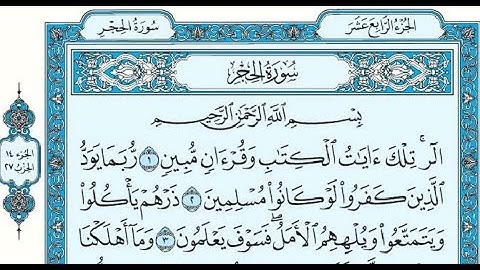 الجُزْءُ الرَّابِعَ عَشَرَ
سُورَةُ الحِجْرِ
سُورَةُ الحِجْرِ
بِسْمِ اللَّهِ الرَّحْمَٰنِ الرَّحِيمِ
الٓرۚ تِلْكَ ءَايَٰتُ ٱلْكِتَٰبِ وَقُرْءَانٍ مُّبِينٍ ١ رُّبَمَا يَوَدُّ
ٱلَّذِينَ كَفَرُوا۟ لَوْ كَانُوا۟ مُسْلِمِينَ ٢ ذَرْهُمْ يَأْكُلُوا۟
وَيَتَمَتَّعُوا۟ وَيُلْهِهِمُ ٱلْأَمَلُۖ فَسَوْفَ يَعْلَمُونَ ٣ وَمَآ أَهْلَكْنَا
الجزء ١٤
الحزب ٢٧